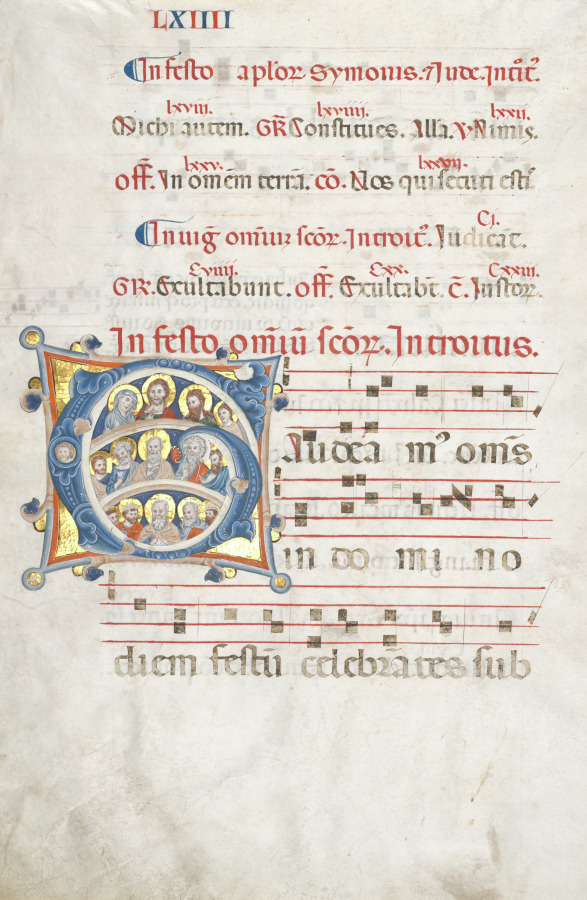 LXIIII
In festo aploꝝ Symonis. ⁊ Jude. Introit̾.
lxviii. lxviiii. lxxii.
Michi autem. GR̃ Constitues. Alla. ꝟ. Nimis.
lxxv. lxxvii.
off̃. In omem terrã. cõ. Vos qui secuti esti
In uiǥ omniũ scõꝝ. Introit̾. Iudicãt.
Ci.
Cviiii. Cxx. Cxxiii.
GR. Exultabunt. off̃. Exultabt̃. C̃. Iustoꝝ.
In festo omĩũ scõꝝ. Introitus.
Gaudea m᾽ om̃s
in do mi no
diem festũ celebrãtes sub